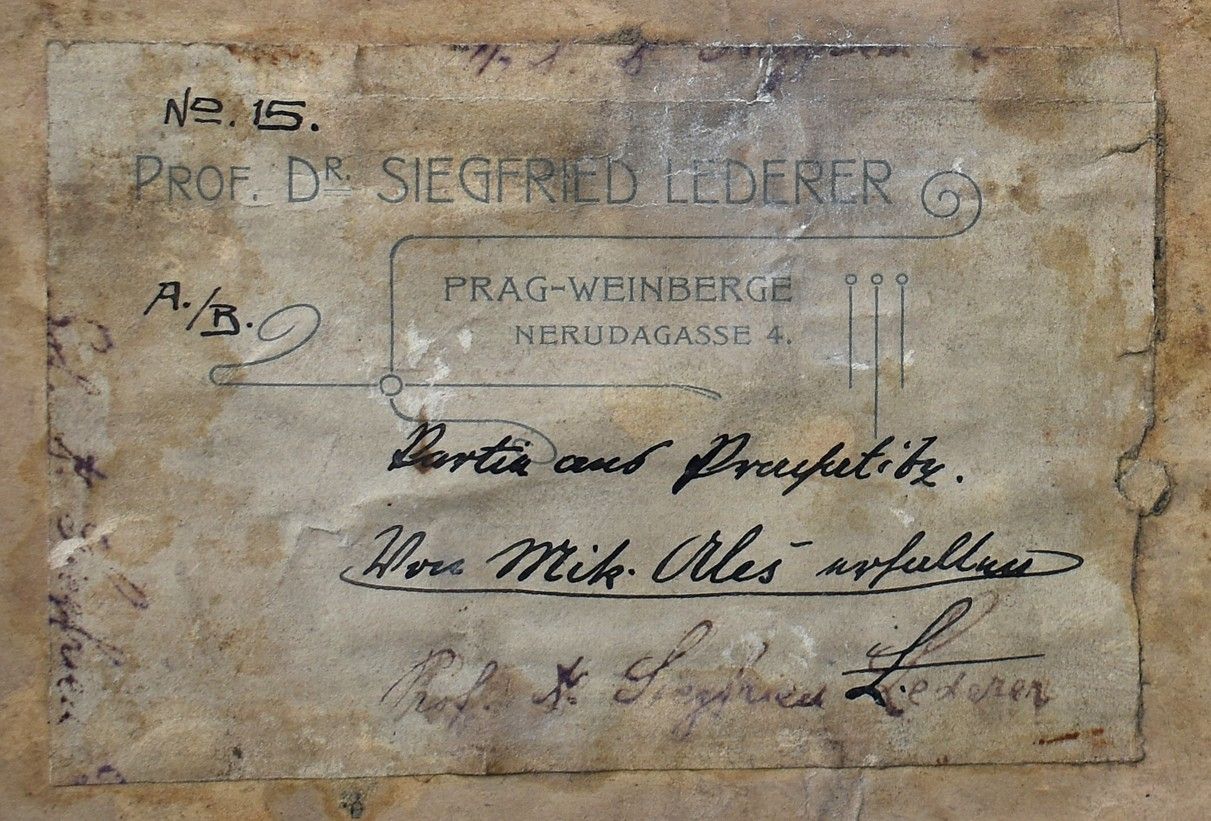 No. 15.
PROF. DR. SIEGFRIED LEDERER
PRAG-WEINBERGE
A./B.
NERUDAGASSE 4.
Partie aus Prachatitz.
Von Mik. Aleš erhalten
Prof. Dr. Siegfried Lederer